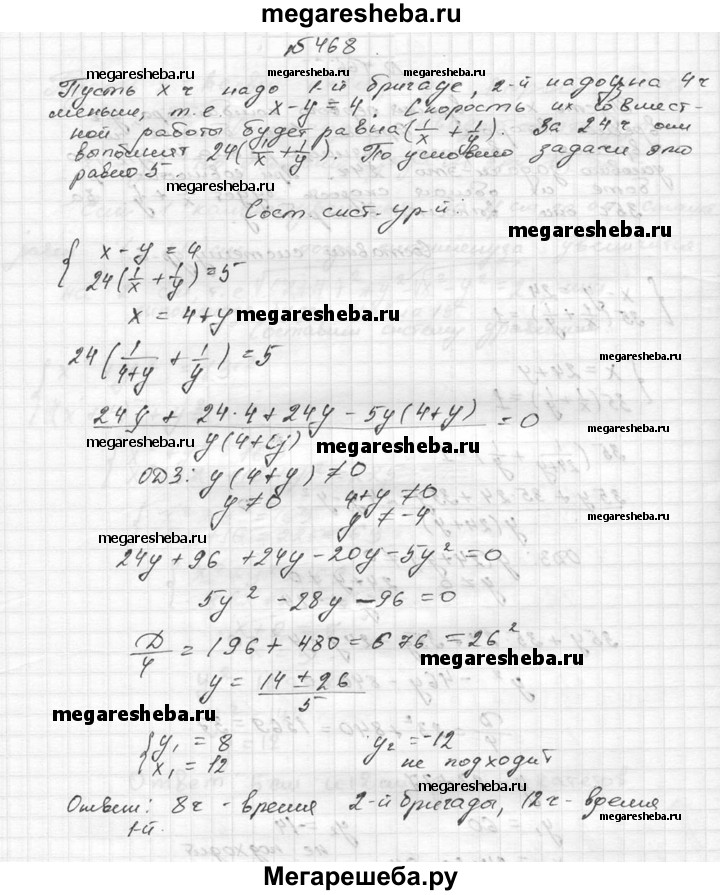 megaresheba.ru
№468
Пусть x ч надо 1-й бригаде, 2-й надо y на 4ч
меньше, т.е. x-y=4. Скорость их совмест-
ной работы будет равна (1/x + 1/y). За 24ч они
выполнят 24(1/x + 1/y). По условию задачи это
равно 5.
Сост. сист. ур-й:
megaresheba.ru
{ x - y = 4
24(1/x + 1/y) = 5
x = 4+y megaresheba.ru
24(1/(4+y) + 1/y) = 5
megaresheba.ru
(24y + 24·4 + 24y - 5y(4+y))/(y(4+y)) = 0
megaresheba.ru megaresheba.ru
ОДЗ: y(4+y) ≠ 0
y ≠ 0 4+y ≠ 0
y ≠ -4
megaresheba.ru
24y + 96 + 24y - 20y - 5y² = 0
5y² - 28y - 96 = 0
D/4 = 196 + 480 = 676 = 26²
megaresheba.ru
y = (14 ± 26)/5
megaresheba.ru
{ y₁ = 8 y₂ = -12
x₁ = 12 не подходит
megaresheba.ru
Ответ: 8ч - время 2-й бригады, 12ч - время
1-й.
megaresheba.ru megaresheba.ru
Мегарешеба.ру